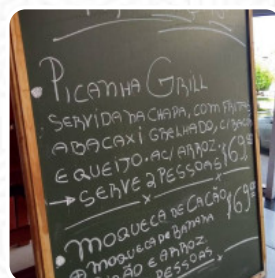 • PICANHA GRILL
SERVIDA NA CHAPA, COM FRITAS
ABACAXI GRELHADO, C/BACON
E QUEIJO. AC/ ARROZ.
→ SERVE 2 PESSOAS $69,
• MOQUECA DE CACÃO
MOQUECA DE BANANA $69,
E ARROZ
PESSOAS